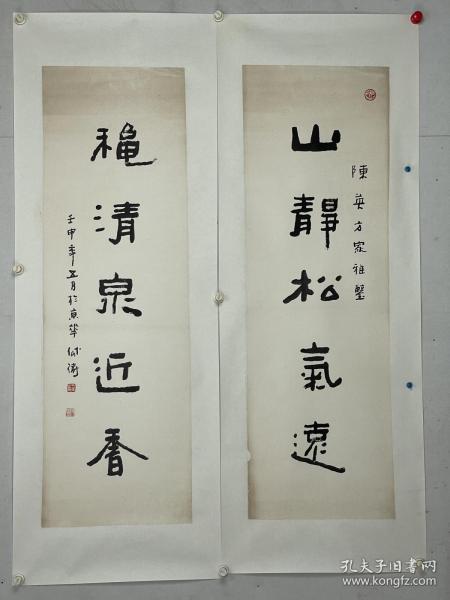 山靜松氣遠
陳英方家雅鑒
穐清泉近香
壬申年五月於京華
孔夫子旧书网
www.kongfz.com